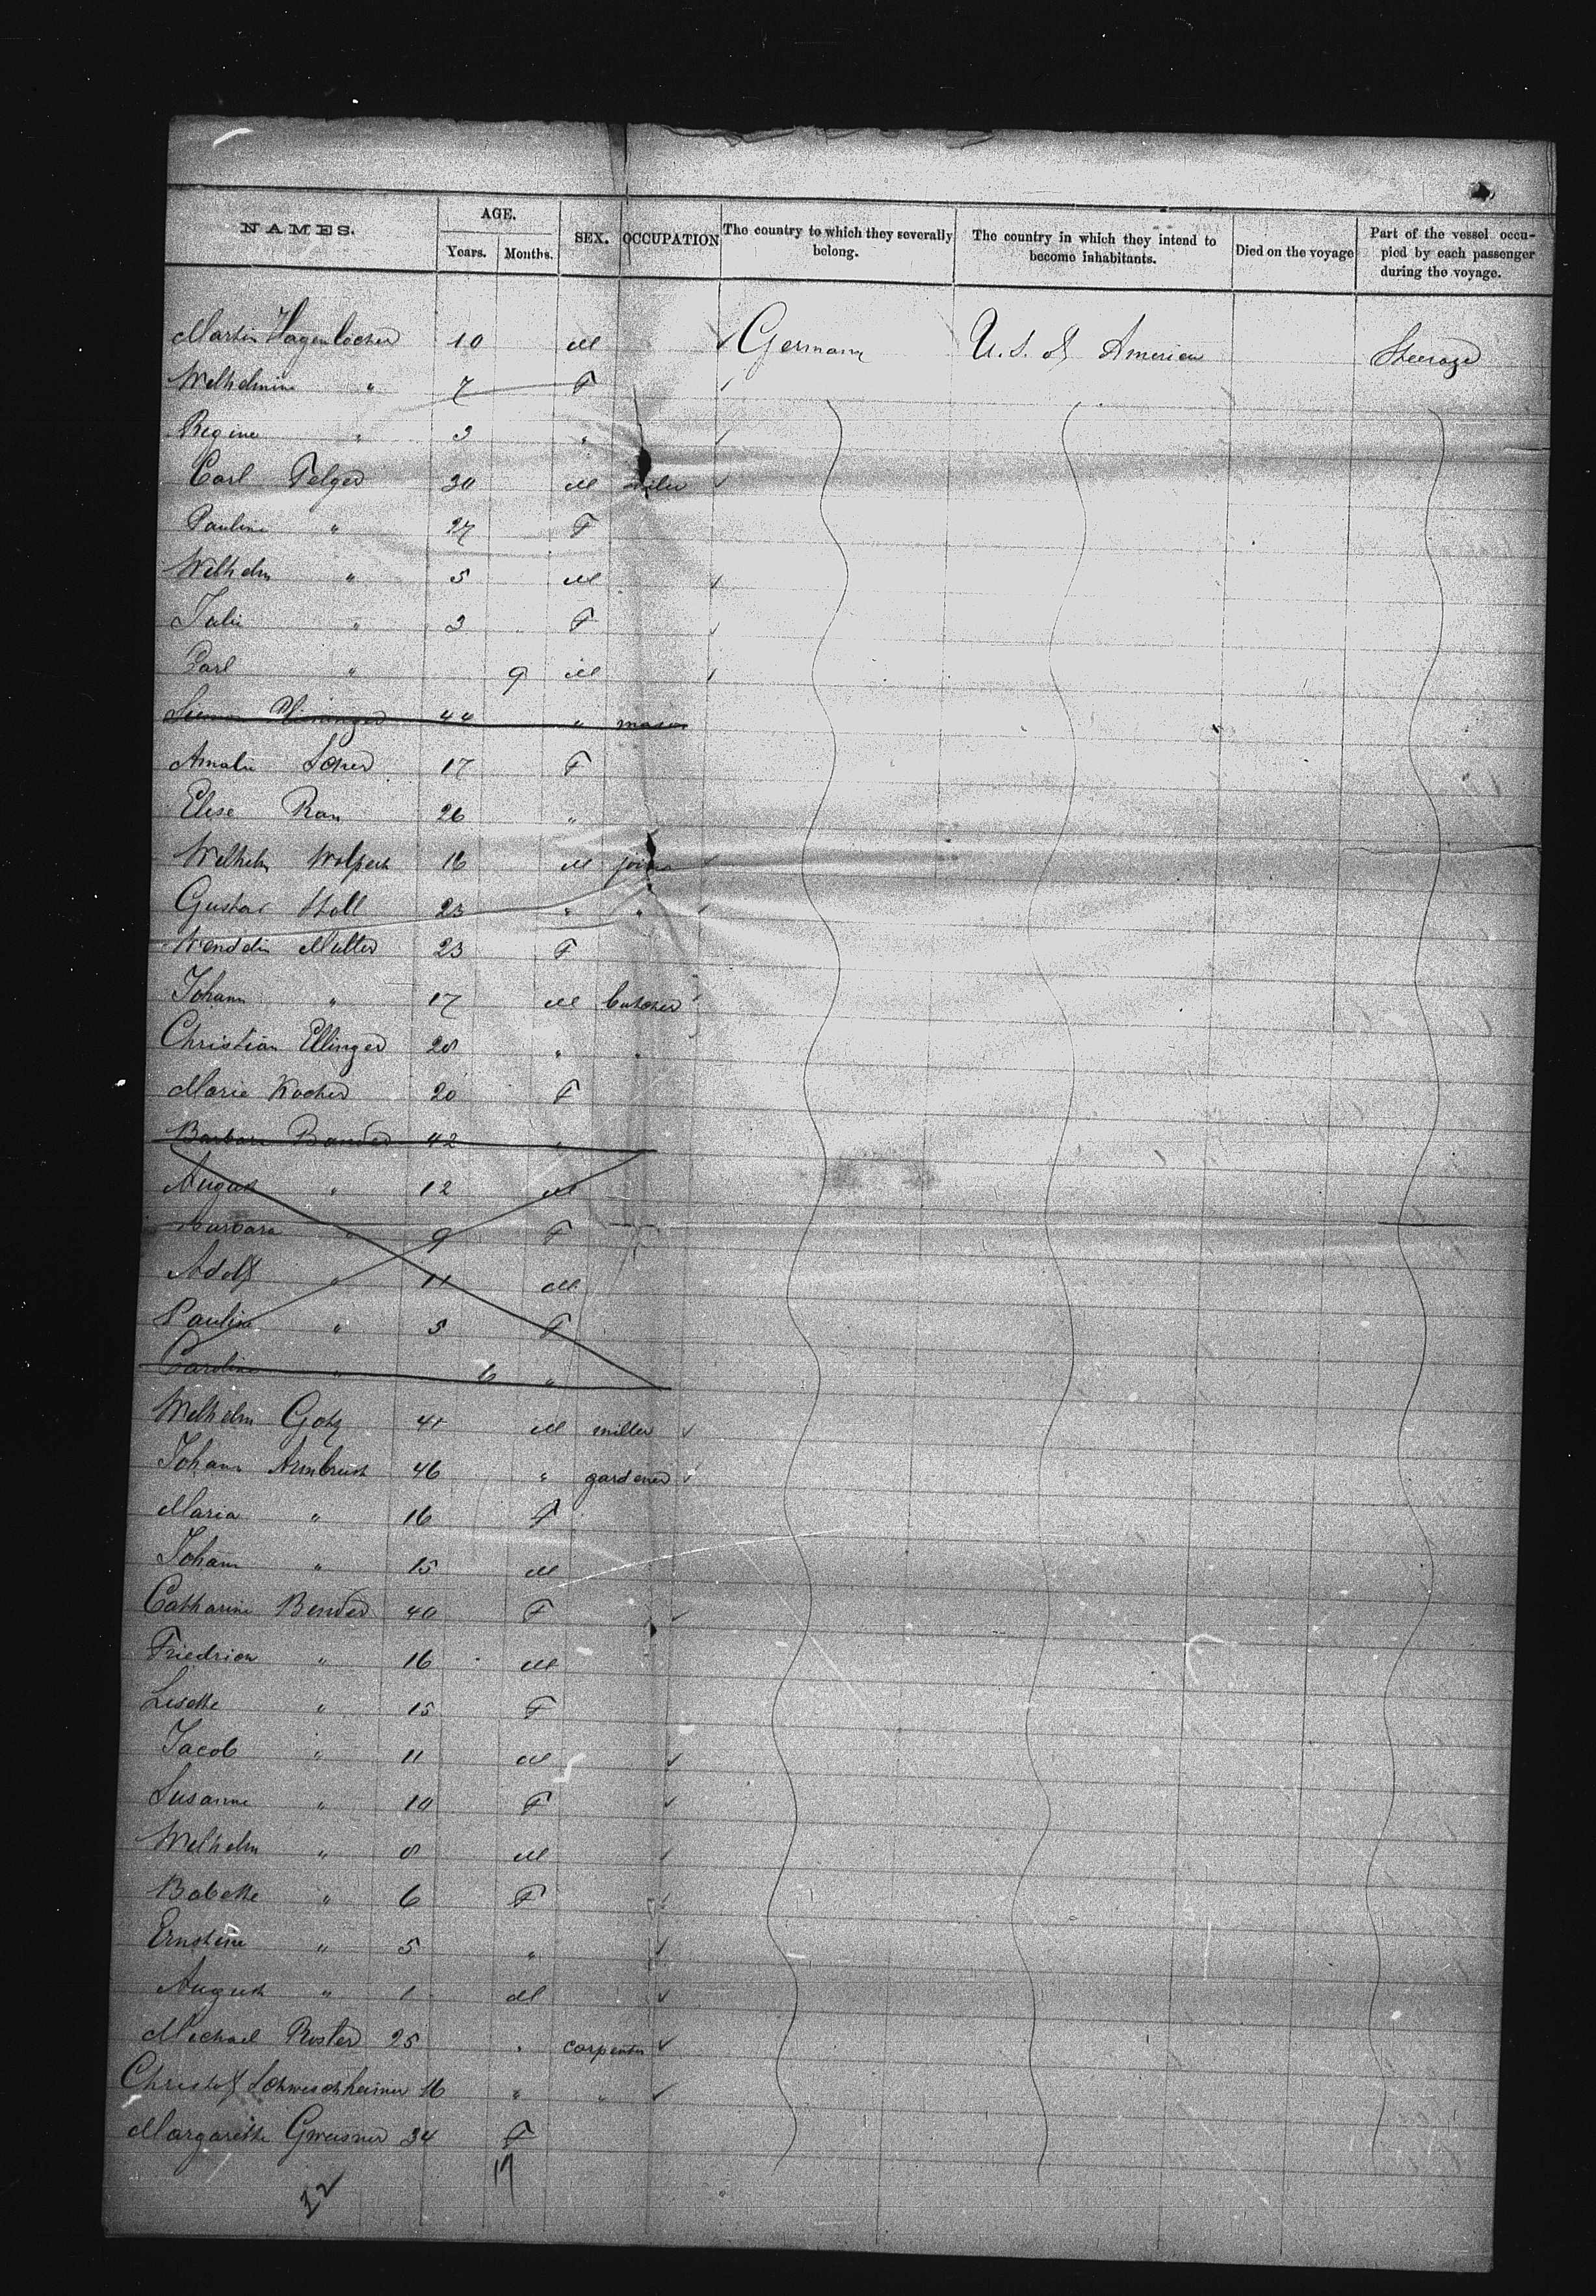 NAMES. AGE. Years. Months. SEX. OCCUPATION The country to which they severally belong. The country in which they intend to become inhabitants. Died on the voyage Part of the vessel occupied by each passenger during the voyage.
Martin Hagenlocher 10 M Germany U. S. of America Steerage
Wilhelmine " 7 F
Regine " 3 "
Carl Felger 30 M
Pauline " 27 F
Wilhelm " 5 M
Julie " 3 F
Carl " 9 M
44 " mason
Amalie 17 F
Elise Rau 26 "
Wilhelm Wolpert 16 M joiner
Gustav Holl 23 " "
Wendelin Muller 23 F
Johann " 17 M butcher
Christian Ellinger 28 " "
Marie Kocher 20 F
Barbara Bander 42 "
August " 12 M
Barbara " 9 F
Adolf " 11 M
Pauline " 5 F
Caroline " 6 "
Wilhelm Gotz 41 M miller
Johann Armbrust 46 " gardener
Maria " 16 F
Johann " 15 M
Catharine Bender 40 F
Friedrich " 16 M
Lisette " 15 F
Jacob " 11 M
Susanne " 10 F
Wilhelm " 8 M
Babette " 6 F
Ernstine " 5 "
August " 1 M
Michael Roster 25 " carpenter
Christof 16 " "
Margarethe 34 F
32 17